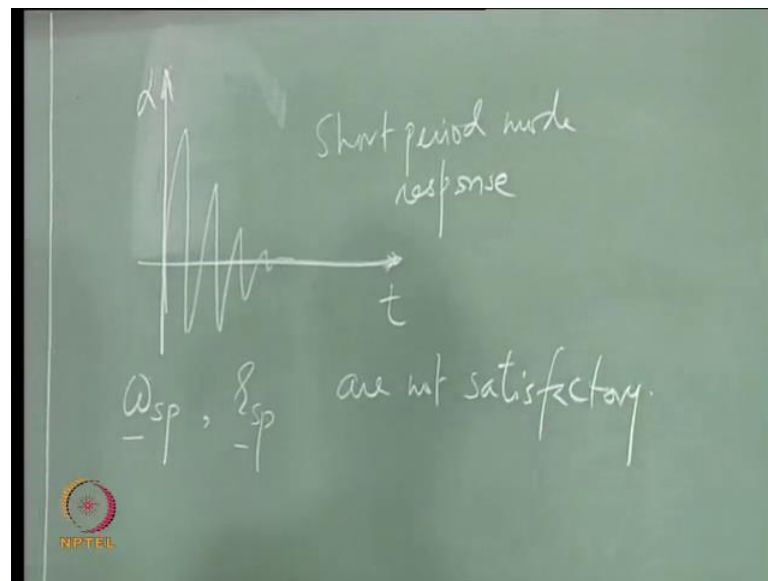 α
Short period mode
response
t
ω_sp, ξ_sp are not satisfactory.
NPTEL